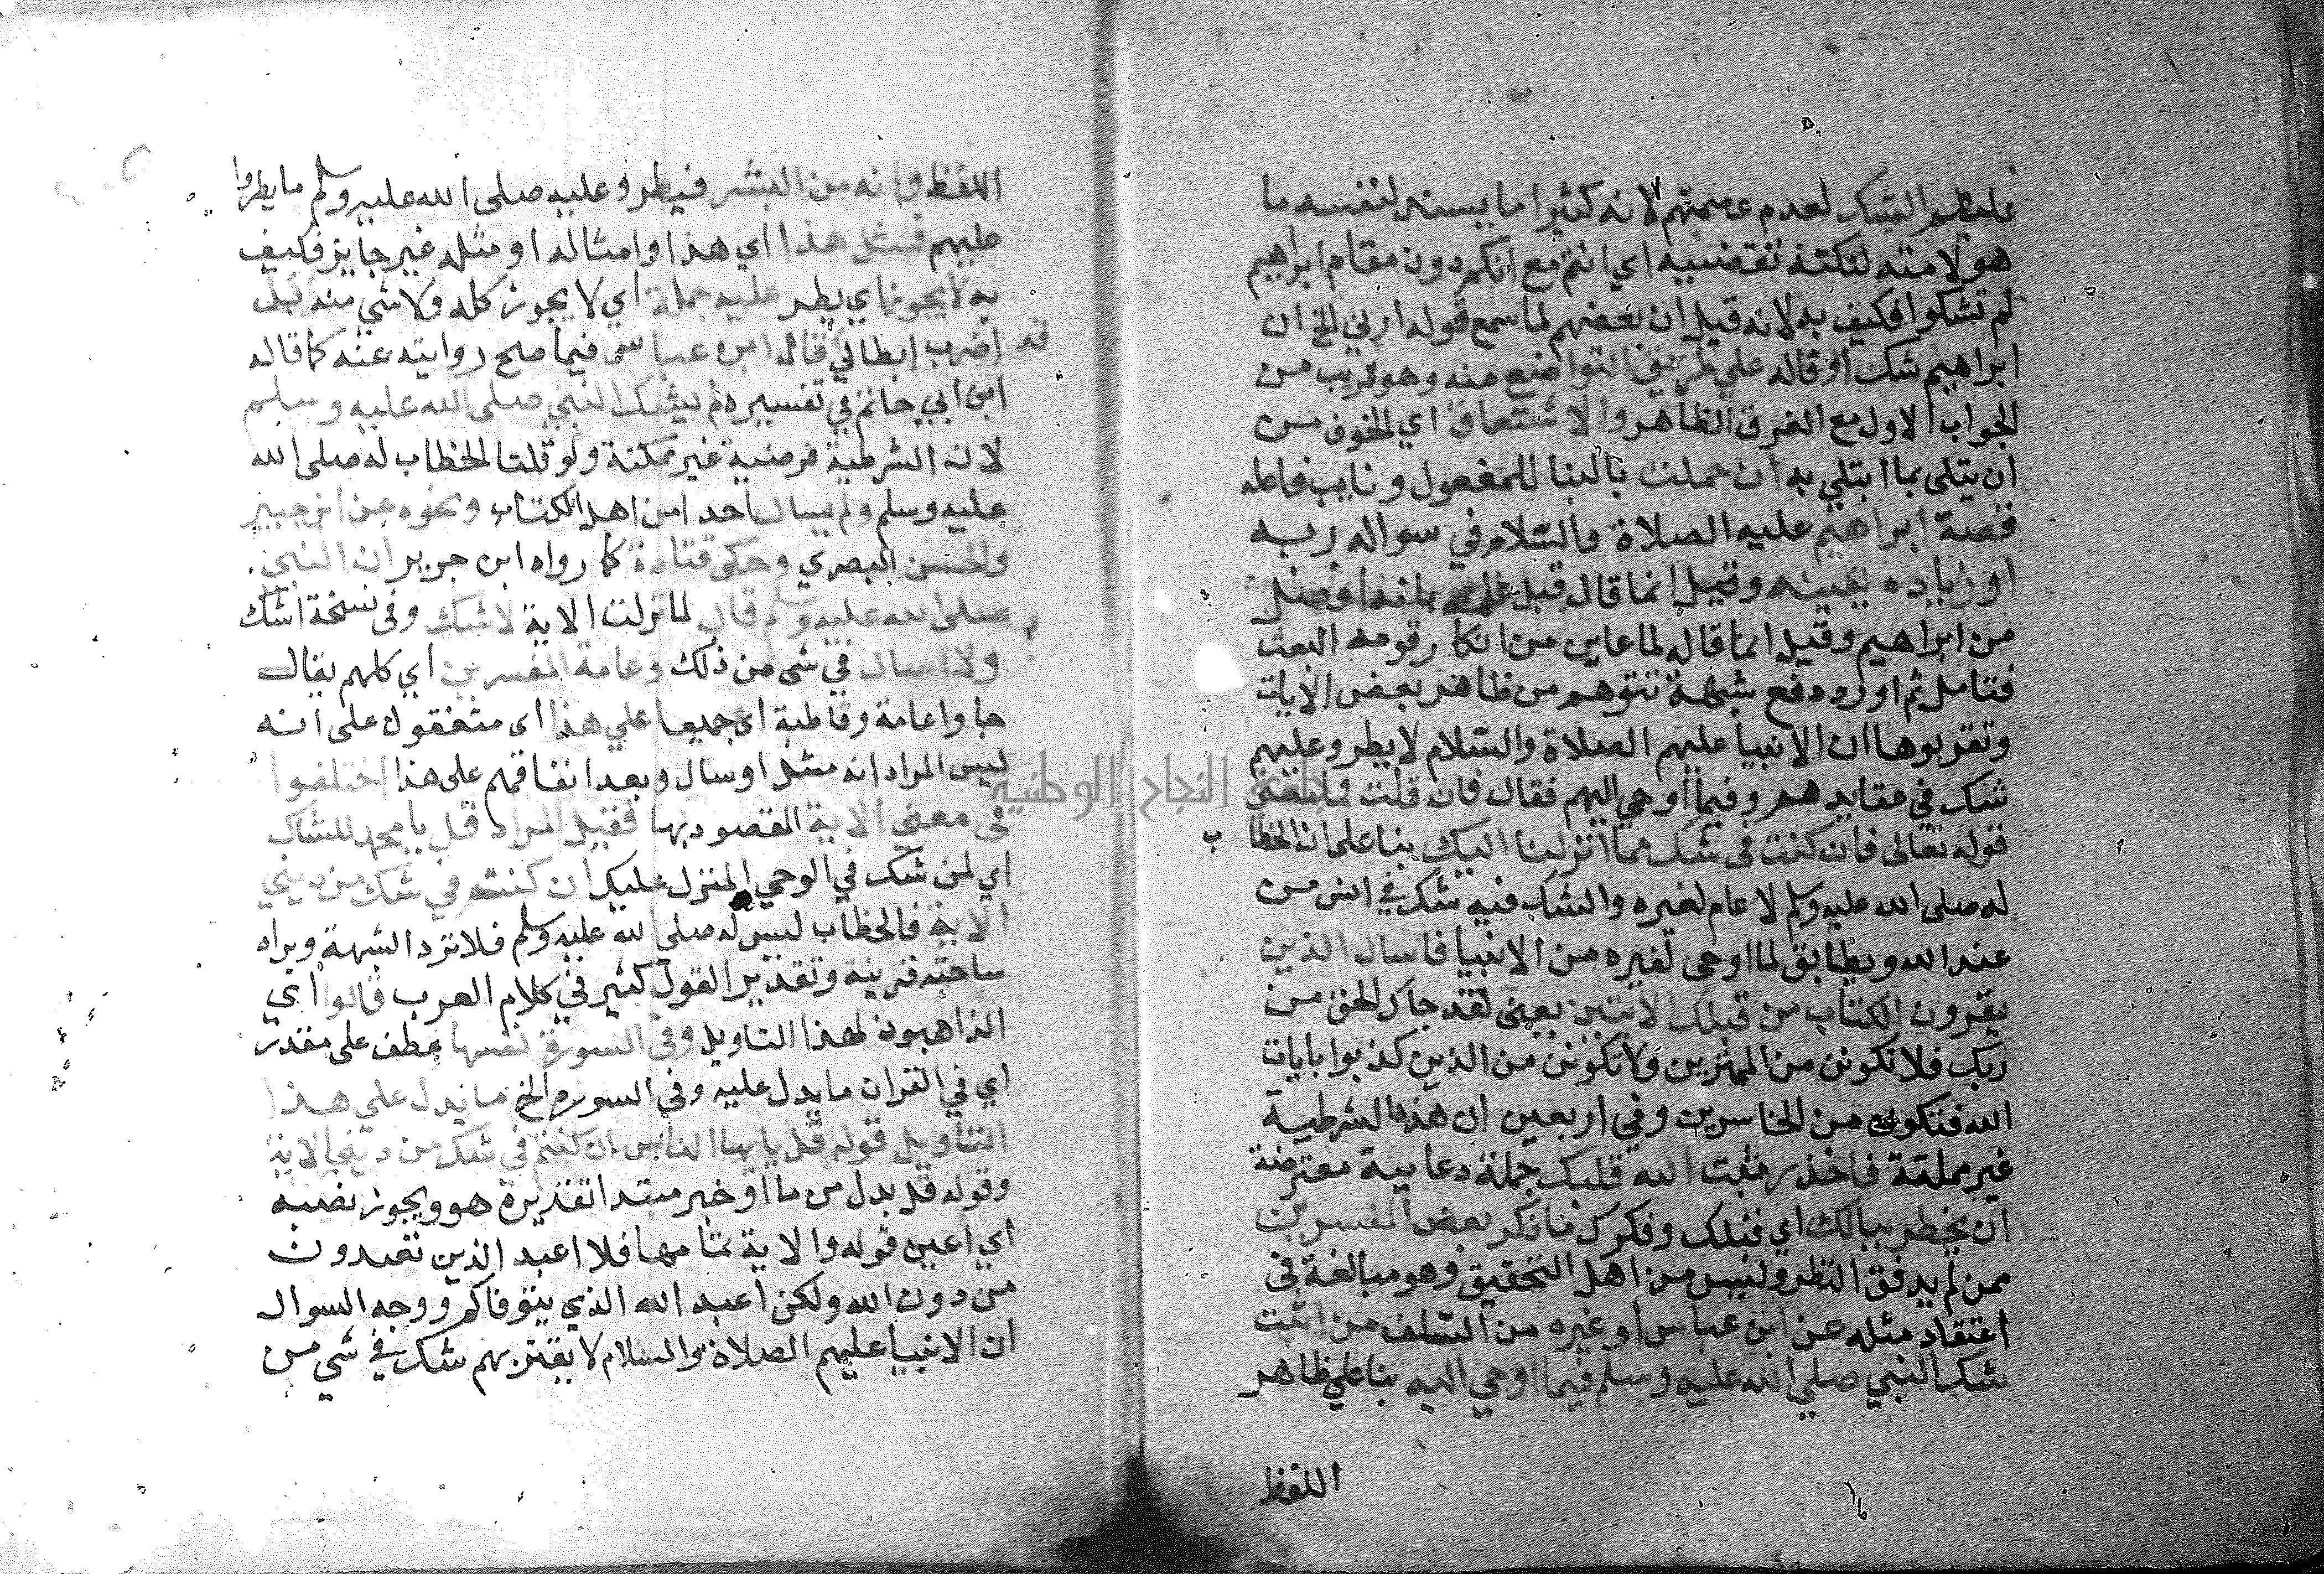 عليهم الشك لعدم عصمتهم لانه كثيرا ما يسند لنفسه ما
هو لامته لنكتة تقتضيه اي انتم مع انكم دون مقام ابراهيم
لم تشكوا فكيف به لانه قيل ان بعضهم لما سمع قوله ارني الخ ان
ابراهيم شك او قاله علي طريق التواضع منه وهو قريب من
الجواب الاول مع الفرق الظاهر والاشفاق اي الخوف من
ان يبتلى بما ابتلي به ان حملت بالبنا للمفعول ونايب فاعله
قصة ابراهيم عليه الصلاة والسلام في سواله ربه
او زياده يقينه وقيل انما قال قبل علمه بانه افضل
من ابراهيم وقيل انما قاله لما عاين من انكار قومه البعث
فتامل ثم اورد دفع شبهة تتوهم من ظاهر بعض الايات
وتقريرها ان الانبيا عليهم الصلاة والسلام لا يطرو عليهم
شك في عقايدهم وفيما اوحي اليهم فقال فان قلت فما معني
قوله تعالى فان كنت في شك مما انزلنا اليك بنا على ان الخطاب
له صلى الله عليه وسلم لا عام لغيره والشك فيه شك في انه من
عند الله ويطابق لما اوحى لغيره من الانبيا فاسال الذين
يقرون الكتاب من قبلك الايتين يعنى لقد جاك الحق من
ربك فلا تكونن من الممترين ولا تكونن من الذين كذبوا بايات
الله فتكون من الخاسرين وفي اربعين ان هذه الشرطية
غير محلقة فاحذر ثبت الله قلبك جملة دعايية معترضة
ان يخطر ببالك اي قلبك وفكرك ما ذكر بعض المفسرين
ممن لم يدقق النظر وليس من اهل التحقيق وهو مبالغة في
اعتقاد مثله عن ابن عباس او غيره من السلف من اثبت
شك النبي صلى الله عليه وسلم فيما اوحي اليه بنا علي ظاهر
اللفظ
اللفظ وانه من البشر فيطرو عليه صلى الله عليه وسلم ما يطروا
عليهم فمثل هذا اي هذا وامثاله او مثله غير جايز فكيف
به لا يجوز اي يطر عليه جملة اي لا يجوز كله ولا شي منه بل
قد
اضرب ابطالي قال ابن عباس فيما صح روايته عنه كما قاله
ابن ابي حاتم في تفسيره لم يشك النبي صلى الله عليه وسلم
لان الشرطية فرضية غير ممكنة ولو قلنا الخطاب له صلى الله
عليه وسلم ولم يسال احدا من اهل الكتاب ونحوه عن ابن جبير
والحسن البصري وحكى قتادة كما رواه ابن جرير ان النبي
صلى الله عليه وسلم قال لما نزلت الاية لا شك وفي نسخة اشك
ولا اسال في شي من ذلك وعامة المفسرين اي كلهم يقال
جاوا عامة وقاطبة اي جميعا علي هذا اي متفقون على انه
ليس المراد انه مثل او سال وبعد اتفاقهم على هذا اختلفوا
في معني الاية المقصود بها فقيل المراد قل يا محمد للشاك
اي لمن شك في الوحي المنزل عليك ان كنتم في شك من ديني
الاية فالخطاب ليس له صلى الله عليه وسلم فلا ترد الشبهة وبراه
ساحته قرينة وتقدير القول كثير في كلام العرب قالوا اي
الذاهبون لهذا التاويل وفي السورة نفسها عطف على مقدر
اي في القران ما يدل عليه وفي السورة الخ ما يدل علي هذا
التاويل قوله قل يا يها الناس ان كنتم في شك من ديني الاية
وقوله قل بدل من ما او خبر مبتدا تقديره هو ويجوز نصبه
اي اعين قوله والاية تمامها فلا اعبد الذين تعبدون
من دون الله ولكن اعبد الله الذي يتوفاكم ووجه السوال
ان الانبيا عليهم الصلاة والسلام لا يعتريهم شك في شي من
جامعة النجاح الوطنية